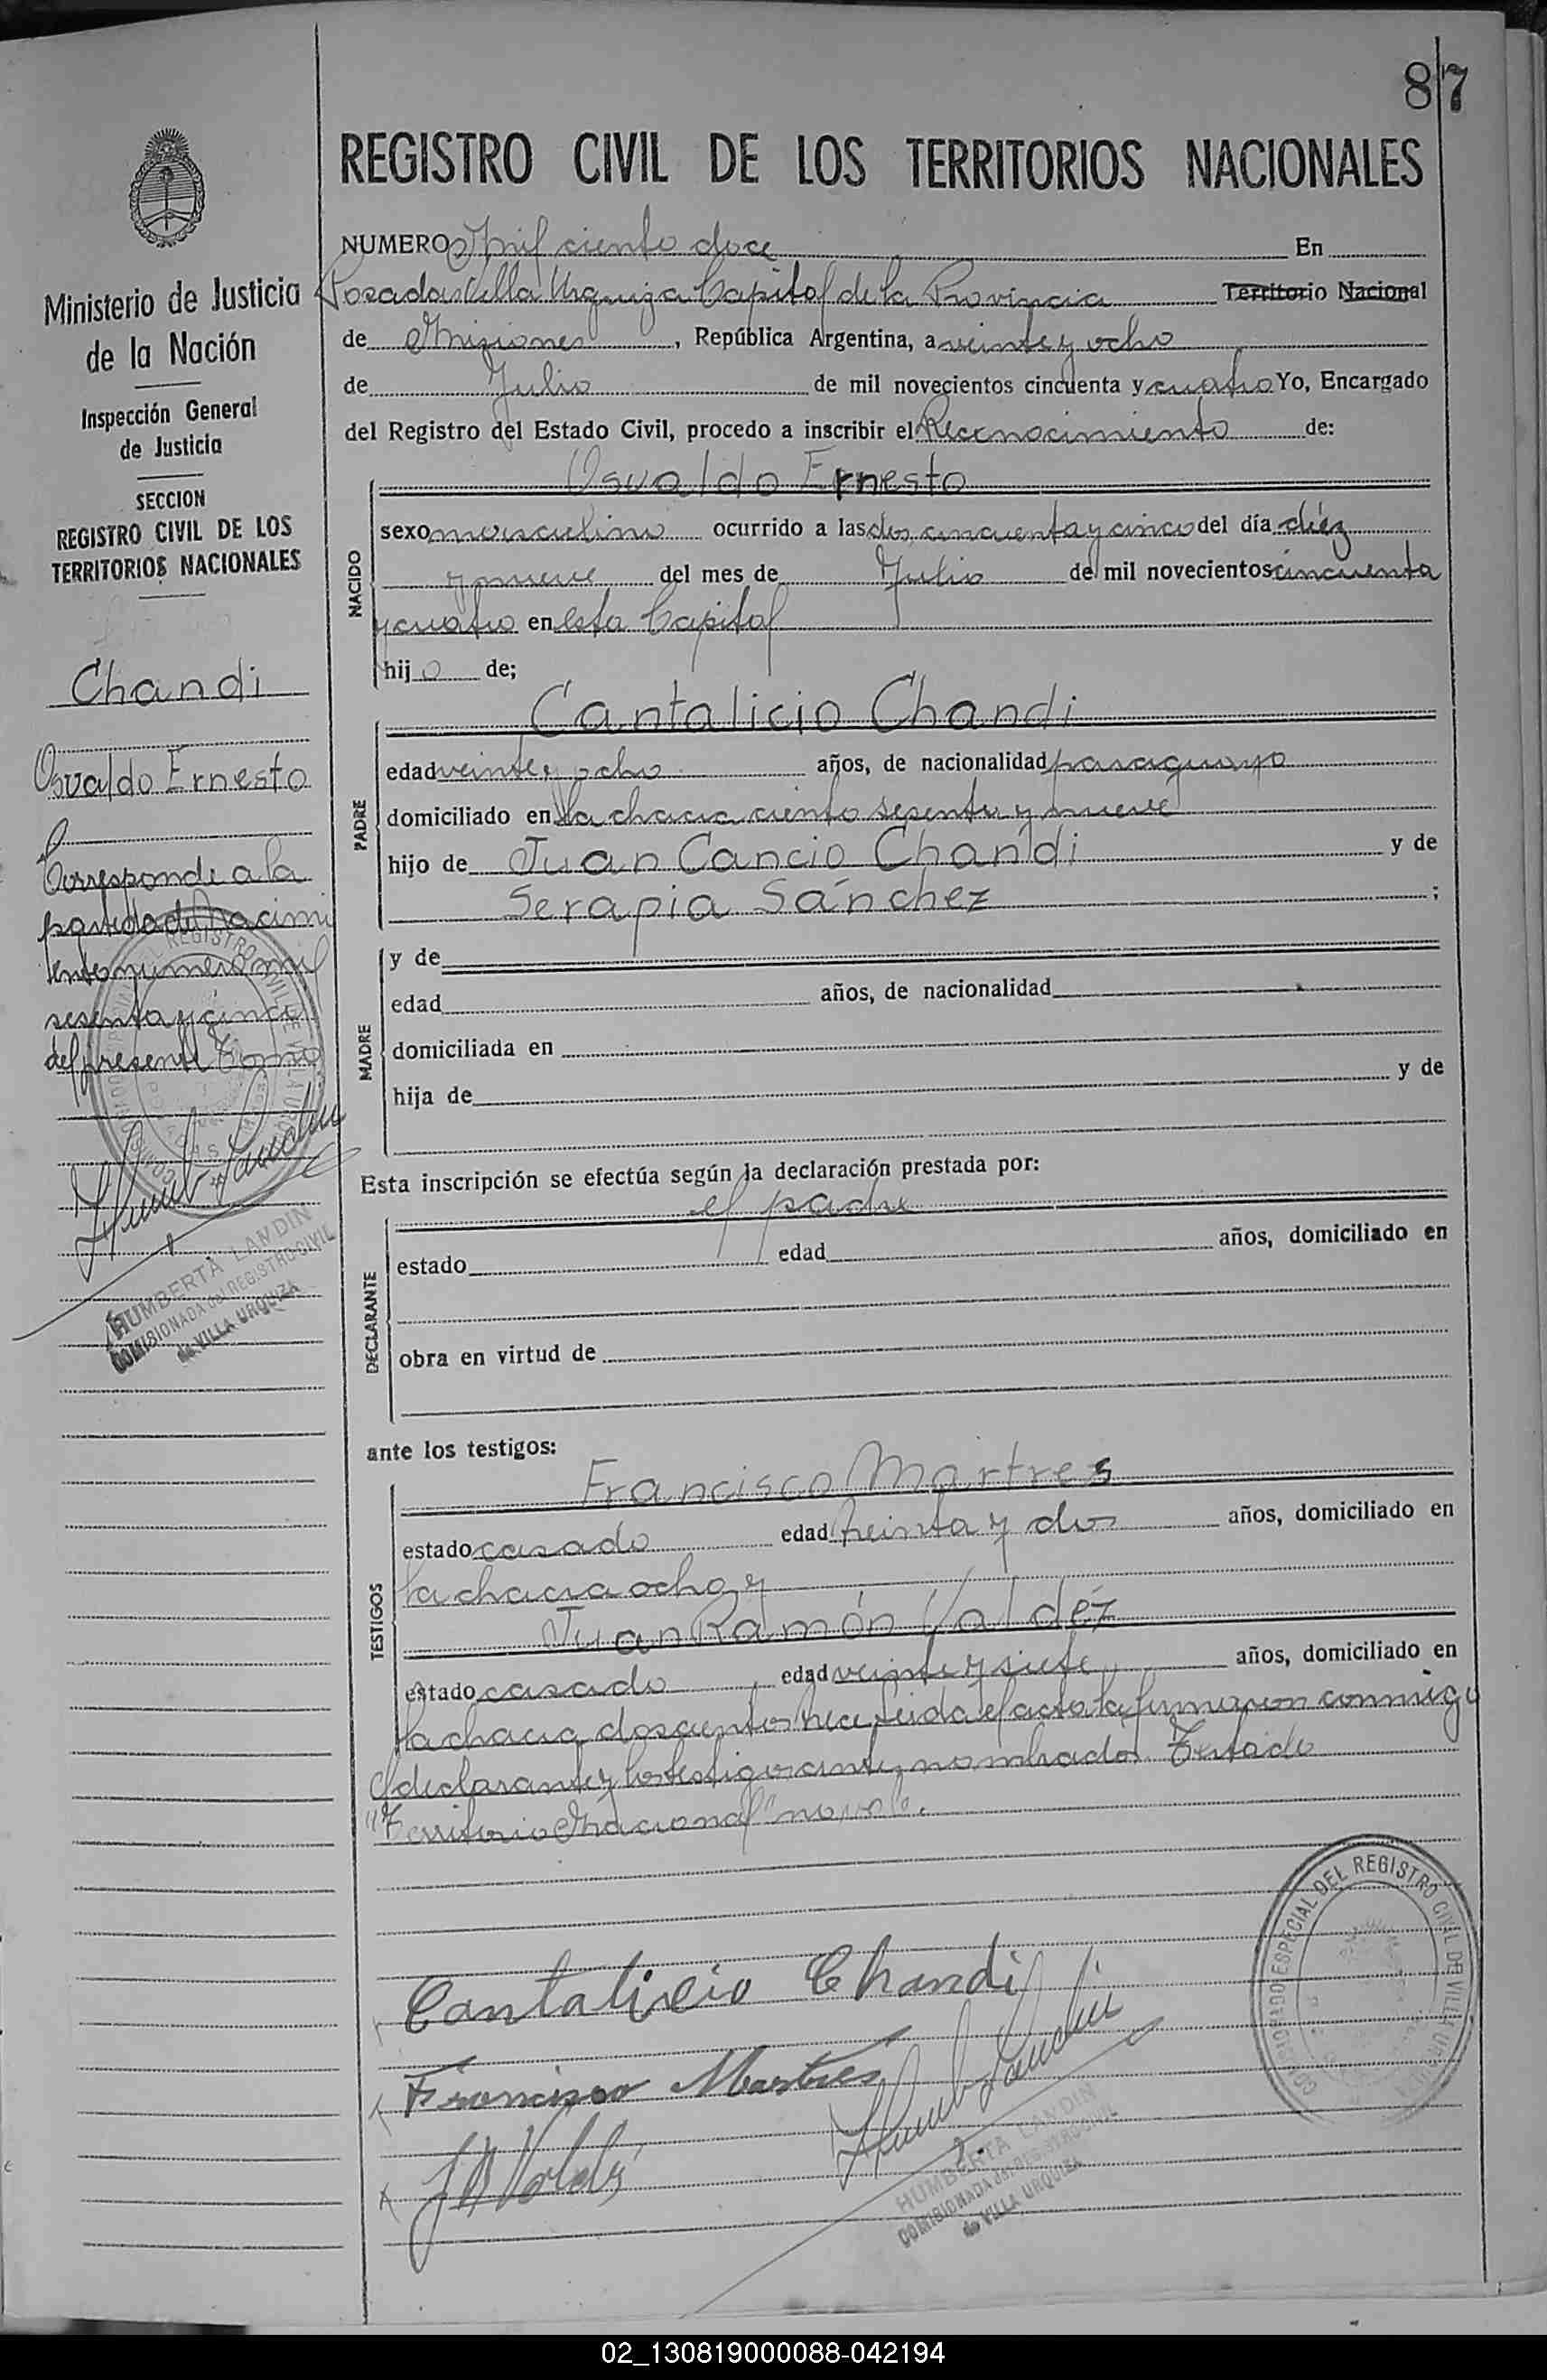 87
REGISTRO CIVIL DE LOS TERRITORIOS NACIONALES
NUMERO Mil ciento doce En
Posadas Villa Urquiza Capital de la Provincia Territorio Nacional
de Misiones, República Argentina, a veinte y ocho
de Julio de mil novecientos cincuenta y cuatro Yo, Encargado
del Registro del Estado Civil, procedo a inscribir el Reconocimiento de:
Osvaldo Ernesto
NACIDO
sexo masculino ocurrido a las dos, cincuenta y cinco del día diéz
y nueve del mes de Julio de mil novecientos cincuenta
y cuatro en esta Capital
hijo de;
Cantalicio Chandi
PADRE
edad veinte y ocho años, de nacionalidad paraguayo
domiciliado en la chacra ciento sesenta y nueve
hijo de Juan Cancio Chandi y de
Serapia Sánchez;
MADRE
y de
edad años, de nacionalidad
domiciliada en
hija de y de
Esta inscripción se efectúa según la declaración prestada por:
el padre
DECLARANTE
estado edad años, domiciliado en
obra en virtud de
ante los testigos:
Francisco Martres
TESTIGOS
estado casado edad treinta y dos años, domiciliado en
la chacra ocho y
Juan Ramón Valdéz
estado casado edad veinte y siete años, domiciliado en
la chacra doscientos trece, leida el acta la firmaron conmigo
el declarante y los testigos antes nombrados. Testado
"Territorio Nacional" no vale.
Cantalicio Chandi
Francisco Martres
J R Valdés
HUMBERTA LANDIN
COMISIONADA del REGISTRO CIVIL
de VILLA URQUIZA
COMISIONADO ESPECIAL DEL REGISTRO CIVIL DE VILLA URQUIZA
Ministerio de Justicia
de la Nación
Inspección General
de Justicia
SECCION
REGISTRO CIVIL DE LOS
TERRITORIOS NACIONALES
Chandi
Osvaldo Ernesto
Corresponde a la
partida de Nacimi
ento numero mil
sesenta y cinco
del presente Tomo
HUMBERTA LANDIN
COMISIONADA del REGISTRO CIVIL
de VILLA URQUIZA
02_130819000088-042194